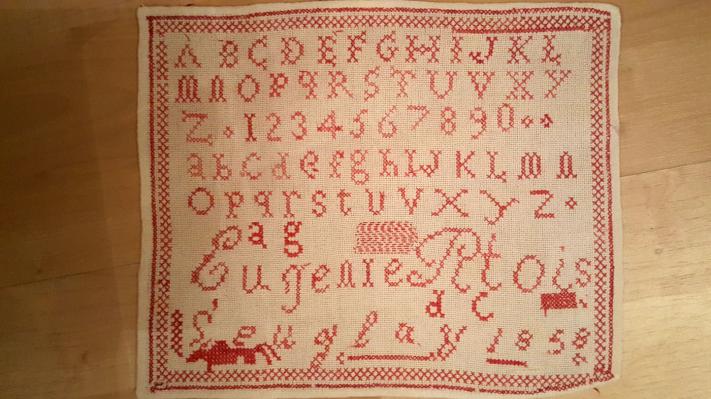 A B C D E F G H I J K L
M N O P Q R S T U V X Y
Z . 1 2 3 4 5 6 7 8 9 0
a b c d e f g h i J K L m n
o p q r s t u v x y z
a g
Eugenie
d c
1858